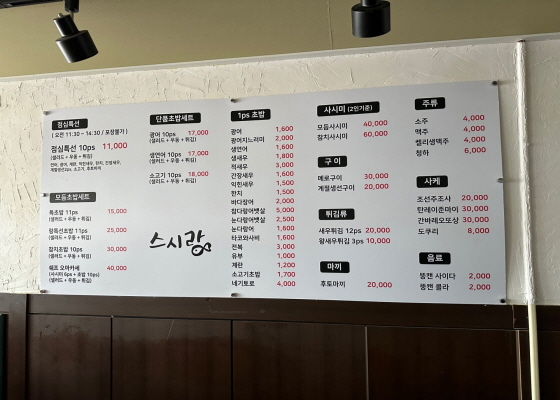 점심특선
( 오전 11:30 ~ 14:30 / 포장불가 )
점심특선 10ps 11,000
(샐러드 + 우동 + 튀김)
모듬초밥세트
특초밥 11ps 15,000
(샐러드 + 우동 + 튀김)
랑특선초밥 11ps 25,000
(샐러드 + 우동 + 튀김)
참치초밥 10ps 30,000
(샐러드 + 우동 + 튀김)
쉐프 오마카세 40,000
(사시미 6ps + 초밥 10ps)
(샐러드 + 우동 + 튀김)
단품초밥세트
광어 10ps 17,000
(샐러드 + 우동 + 튀김)
생연어 10ps 17,000
(샐러드 + 우동 + 튀김)
소고기 10ps 18,000
(샐러드 + 우동 + 튀김)
스시랑
1ps 초밥
광어 1,600
광어지느러미 2,000
생연어 1,600
생새우 1,800
적새우 3,000
간장새우 1,600
익힌새우 1,500
한치 1,500
바다장어 2,000
참다랑어뱃살 5,000
눈다랑어뱃살 2,500
눈다랑어 1,600
타코와사비 1,600
전복 3,000
유부 1,000
계란 1,200
소고기초밥 1,700
네기토로 4,000
사시미 (2인기준)
모듬사시미 40,000
참치사시미 60,000
구 이
메로구이 30,000
계절생선구이 20,000
튀김류
새우튀김 12ps 20,000
왕새우튀김 3ps 10,000
마끼
후토마끼 20,000
주류
소주 4,000
맥주 4,000
켈리생맥주 4,000
청하 6,000
사케
조선주조사 20,000
탄레이준마이 30,000
간바레오또상 30,000
도쿠리 8,000
음료
뚱캔 사이다 2,000
뚱캔 콜라 2,000